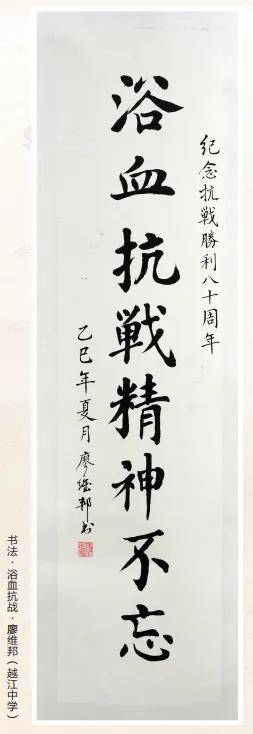 紀念抗戰勝利八十周年
浴血抗戰精神不忘
乙巳年夏月廖維邦书
书法·浴血抗战·廖维邦（越江中学）